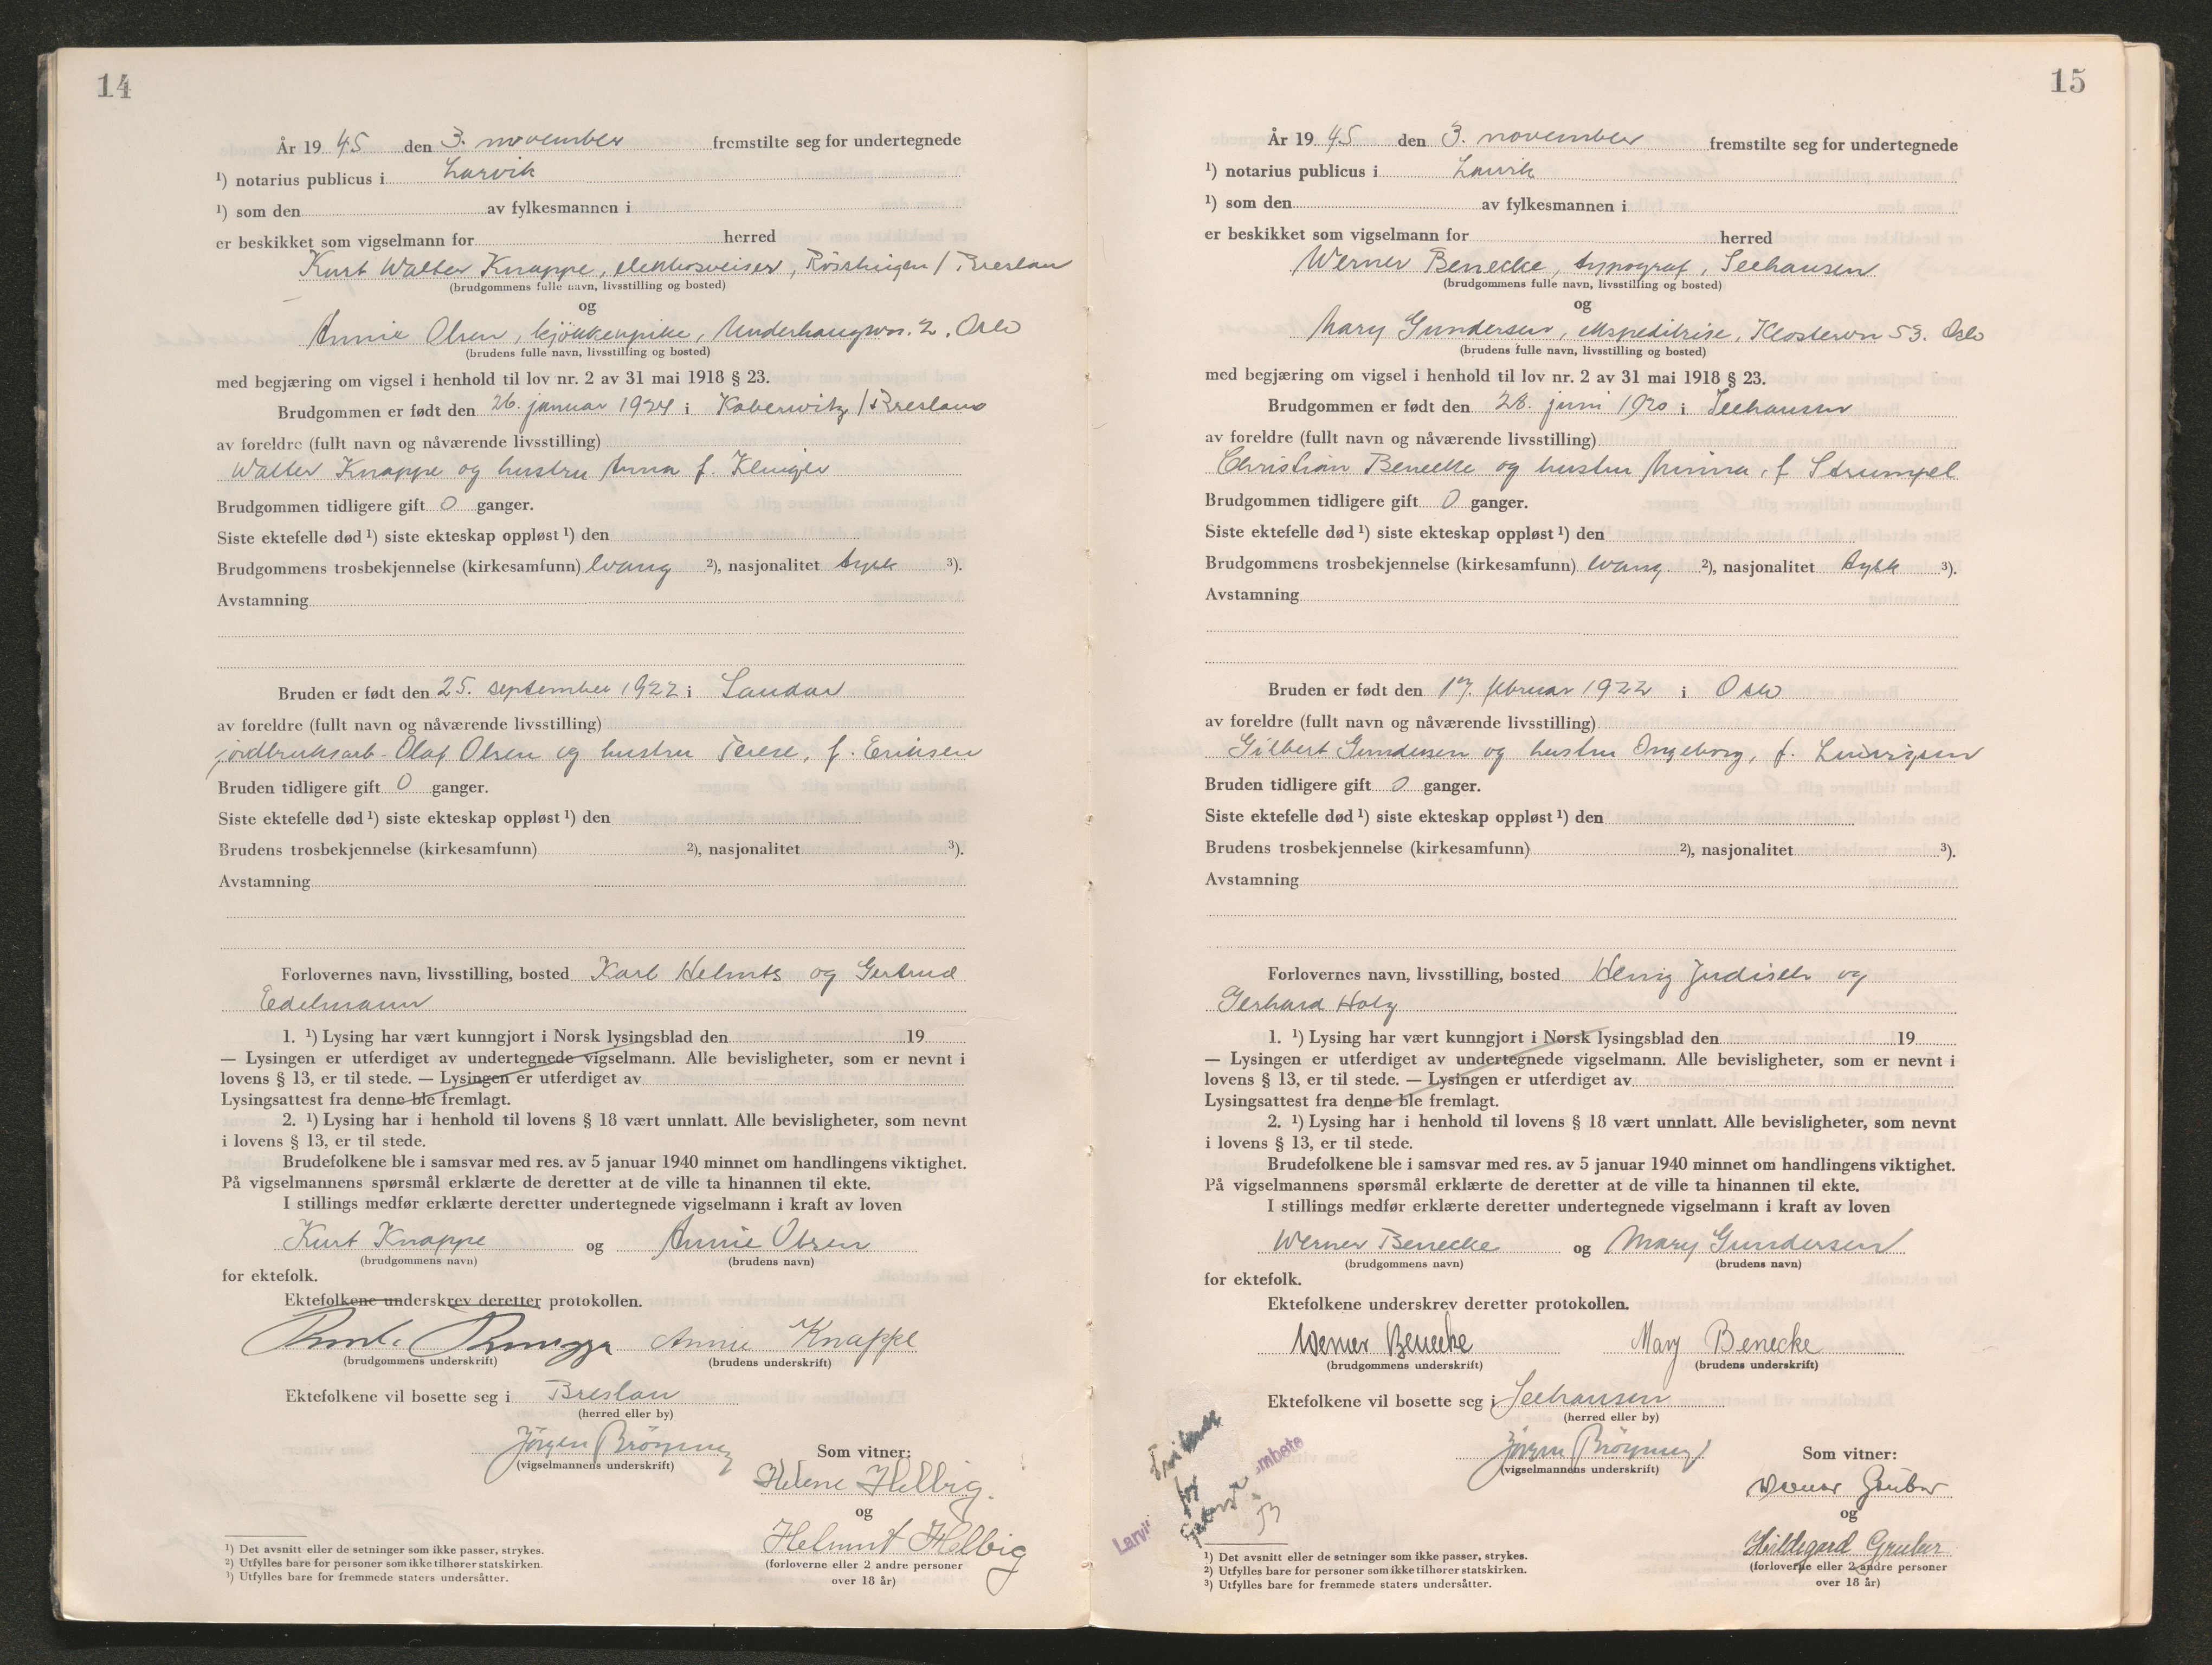 14
År 19 45 den 3. november fremstilte seg for undertegnede
¹) notarius publicus i Larvik
¹) som den av fylkesmannen i
er beskikket som vigselmann for herred
Kurt Walter Knappe, elektrosveiser, / Breslau
(brudgommens fulle navn, livsstilling og bosted)
og
Annie Olsen, kjökkenpike, Underhaugsvn. 2, Oslo
(brudens fulle navn, livsstilling og bosted)
med begjæring om vigsel i henhold til lov nr. 2 av 31 mai 1918 § 23.
Brudgommen er født den 26. januar 1924 i Koberwitz / Breslau
av foreldre (fullt navn og nåværende livsstilling)
Walter Knappe og hustru Anna f. Klinger
Brudgommen tidligere gift 0 ganger.
Siste ektefelle død ¹) siste ekteskap oppløst ¹) den
Brudgommens trosbekjennelse (kirkesamfunn) evang ²), nasjonalitet tysk ³).
Avstamning
Bruden er født den 25. september 1922 i Sandar
av foreldre (fullt navn og nåværende livsstilling)
jordbruksarb. Olaf Olsen og hustru Terese, f. Eriksen
Bruden tidligere gift 0 ganger.
Siste ektefelle død ¹) siste ekteskap oppløst ¹) den
Brudens trosbekjennelse (kirkesamfunn) ²), nasjonalitet ³).
Avstamning
Forlovernes navn, livsstilling, bosted Karl Helmts og Gertrud
Edelmann
1. ¹) Lysing har vært kunngjort i Norsk lysingsblad den 19
— Lysingen er utferdiget av undertegnede vigselmann. Alle bevisligheter, som er nevnt i
lovens § 13, er til stede. — Lysingen er utferdiget av
Lysingsattest fra denne ble fremlagt.
2. ¹) Lysing har i henhold til lovens § 18 vært unnlatt. Alle bevisligheter, som nevnt
i lovens § 13, er til stede.
Brudefolkene ble i samsvar med res. av 5 januar 1940 minnet om handlingens viktighet.
På vigselmannens spørsmål erklærte de deretter at de ville ta hinannen til ekte.
I stillings medfør erklærte deretter undertegnede vigselmann i kraft av loven
Kurt Knappe og Annie Olsen
(brudgommens navn) (brudens navn)
for ektefolk.
Ektefolkene underskrev deretter protokollen.
Annie Knappe
(brudgommens underskrift) (brudens underskrift)
Ektefolkene vil bosette seg i Breslau
(herred eller by)
Jörgen Brömmey
(vigselmannens underskrift)
Som vitner:
Helene Helbig.
og
Helmut Helbig
(forloverne eller 2 andre personer
over 18 år)
¹) Det avsnitt eller de setninger som ikke passer, strykes.
²) Utfylles bare for personer som ikke tilhører statskirken.
³) Utfylles bare for fremmede staters undersåtter.
15
År 19 45 den 3. november fremstilte seg for undertegnede
¹) notarius publicus i Larvik
¹) som den av fylkesmannen i
er beskikket som vigselmann for herred
Werner Benecke, typograf, Seehausen
(brudgommens fulle navn, livsstilling og bosted)
og
Mary Gundersen, ekspeditrise, Klostervn 53. Oslo
(brudens fulle navn, livsstilling og bosted)
med begjæring om vigsel i henhold til lov nr. 2 av 31 mai 1918 § 23.
Brudgommen er født den 28. juni 1920 i Seehausen
av foreldre (fullt navn og nåværende livsstilling)
Christian Benecke og hustru Minna, f Strumpel
Brudgommen tidligere gift 0 ganger.
Siste ektefelle død ¹) siste ekteskap oppløst ¹) den
Brudgommens trosbekjennelse (kirkesamfunn) evang. ²), nasjonalitet tysk ³).
Avstamning
Bruden er født den 17. februar 1922 i Oslo
av foreldre (fullt navn og nåværende livsstilling)
Gilbert Gundersen og hustru Ingeborg, f. Ludvigsen
Bruden tidligere gift 0 ganger.
Siste ektefelle død ¹) siste ekteskap oppløst ¹) den
Brudens trosbekjennelse (kirkesamfunn) ²), nasjonalitet ³).
Avstamning
Forlovernes navn, livsstilling, bosted og
Gerhard Holz
1. ¹) Lysing har vært kunngjort i Norsk lysingsblad den 19
— Lysingen er utferdiget av undertegnede vigselmann. Alle bevisligheter, som er nevnt i
lovens § 13, er til stede. — Lysingen er utferdiget av
Lysingsattest fra denne ble fremlagt.
2. ¹) Lysing har i henhold til lovens § 18 vært unnlatt. Alle bevisligheter, som nevnt
i lovens § 13, er til stede.
Brudefolkene ble i samsvar med res. av 5 januar 1940 minnet om handlingens viktighet.
På vigselmannens spørsmål erklærte de deretter at de ville ta hinannen til ekte.
I stillings medfør erklærte deretter undertegnede vigselmann i kraft av loven
Werner Benecke og Mary Gundersen
(brudgommens navn) (brudens navn)
for ektefolk.
Ektefolkene underskrev deretter protokollen.
Werner Benecke Mary Benecke
(brudgommens underskrift) (brudens underskrift)
Ektefolkene vil bosette seg i Seehausen
(herred eller by)
Jörgen Brömmey
(vigselmannens underskrift)
Som vitner:
Gruber
og
Hildegard Gruber
(forloverne eller 2 andre personer
over 18 år)
¹) Det avsnitt eller de setninger som ikke passer, strykes.
²) Utfylles bare for personer som ikke tilhører statskirken.
³) Utfylles bare for fremmede staters undersåtter.